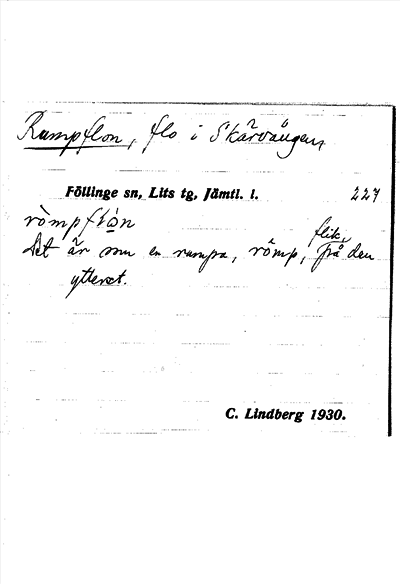 Rumpflon, flo i Skärvången
Föllinge sn, Lits tg, Jämtl. l. 227
römpflón
flik,
Det är som en rumpa, römp, på den
ytterst.
C. Lindberg 1930.